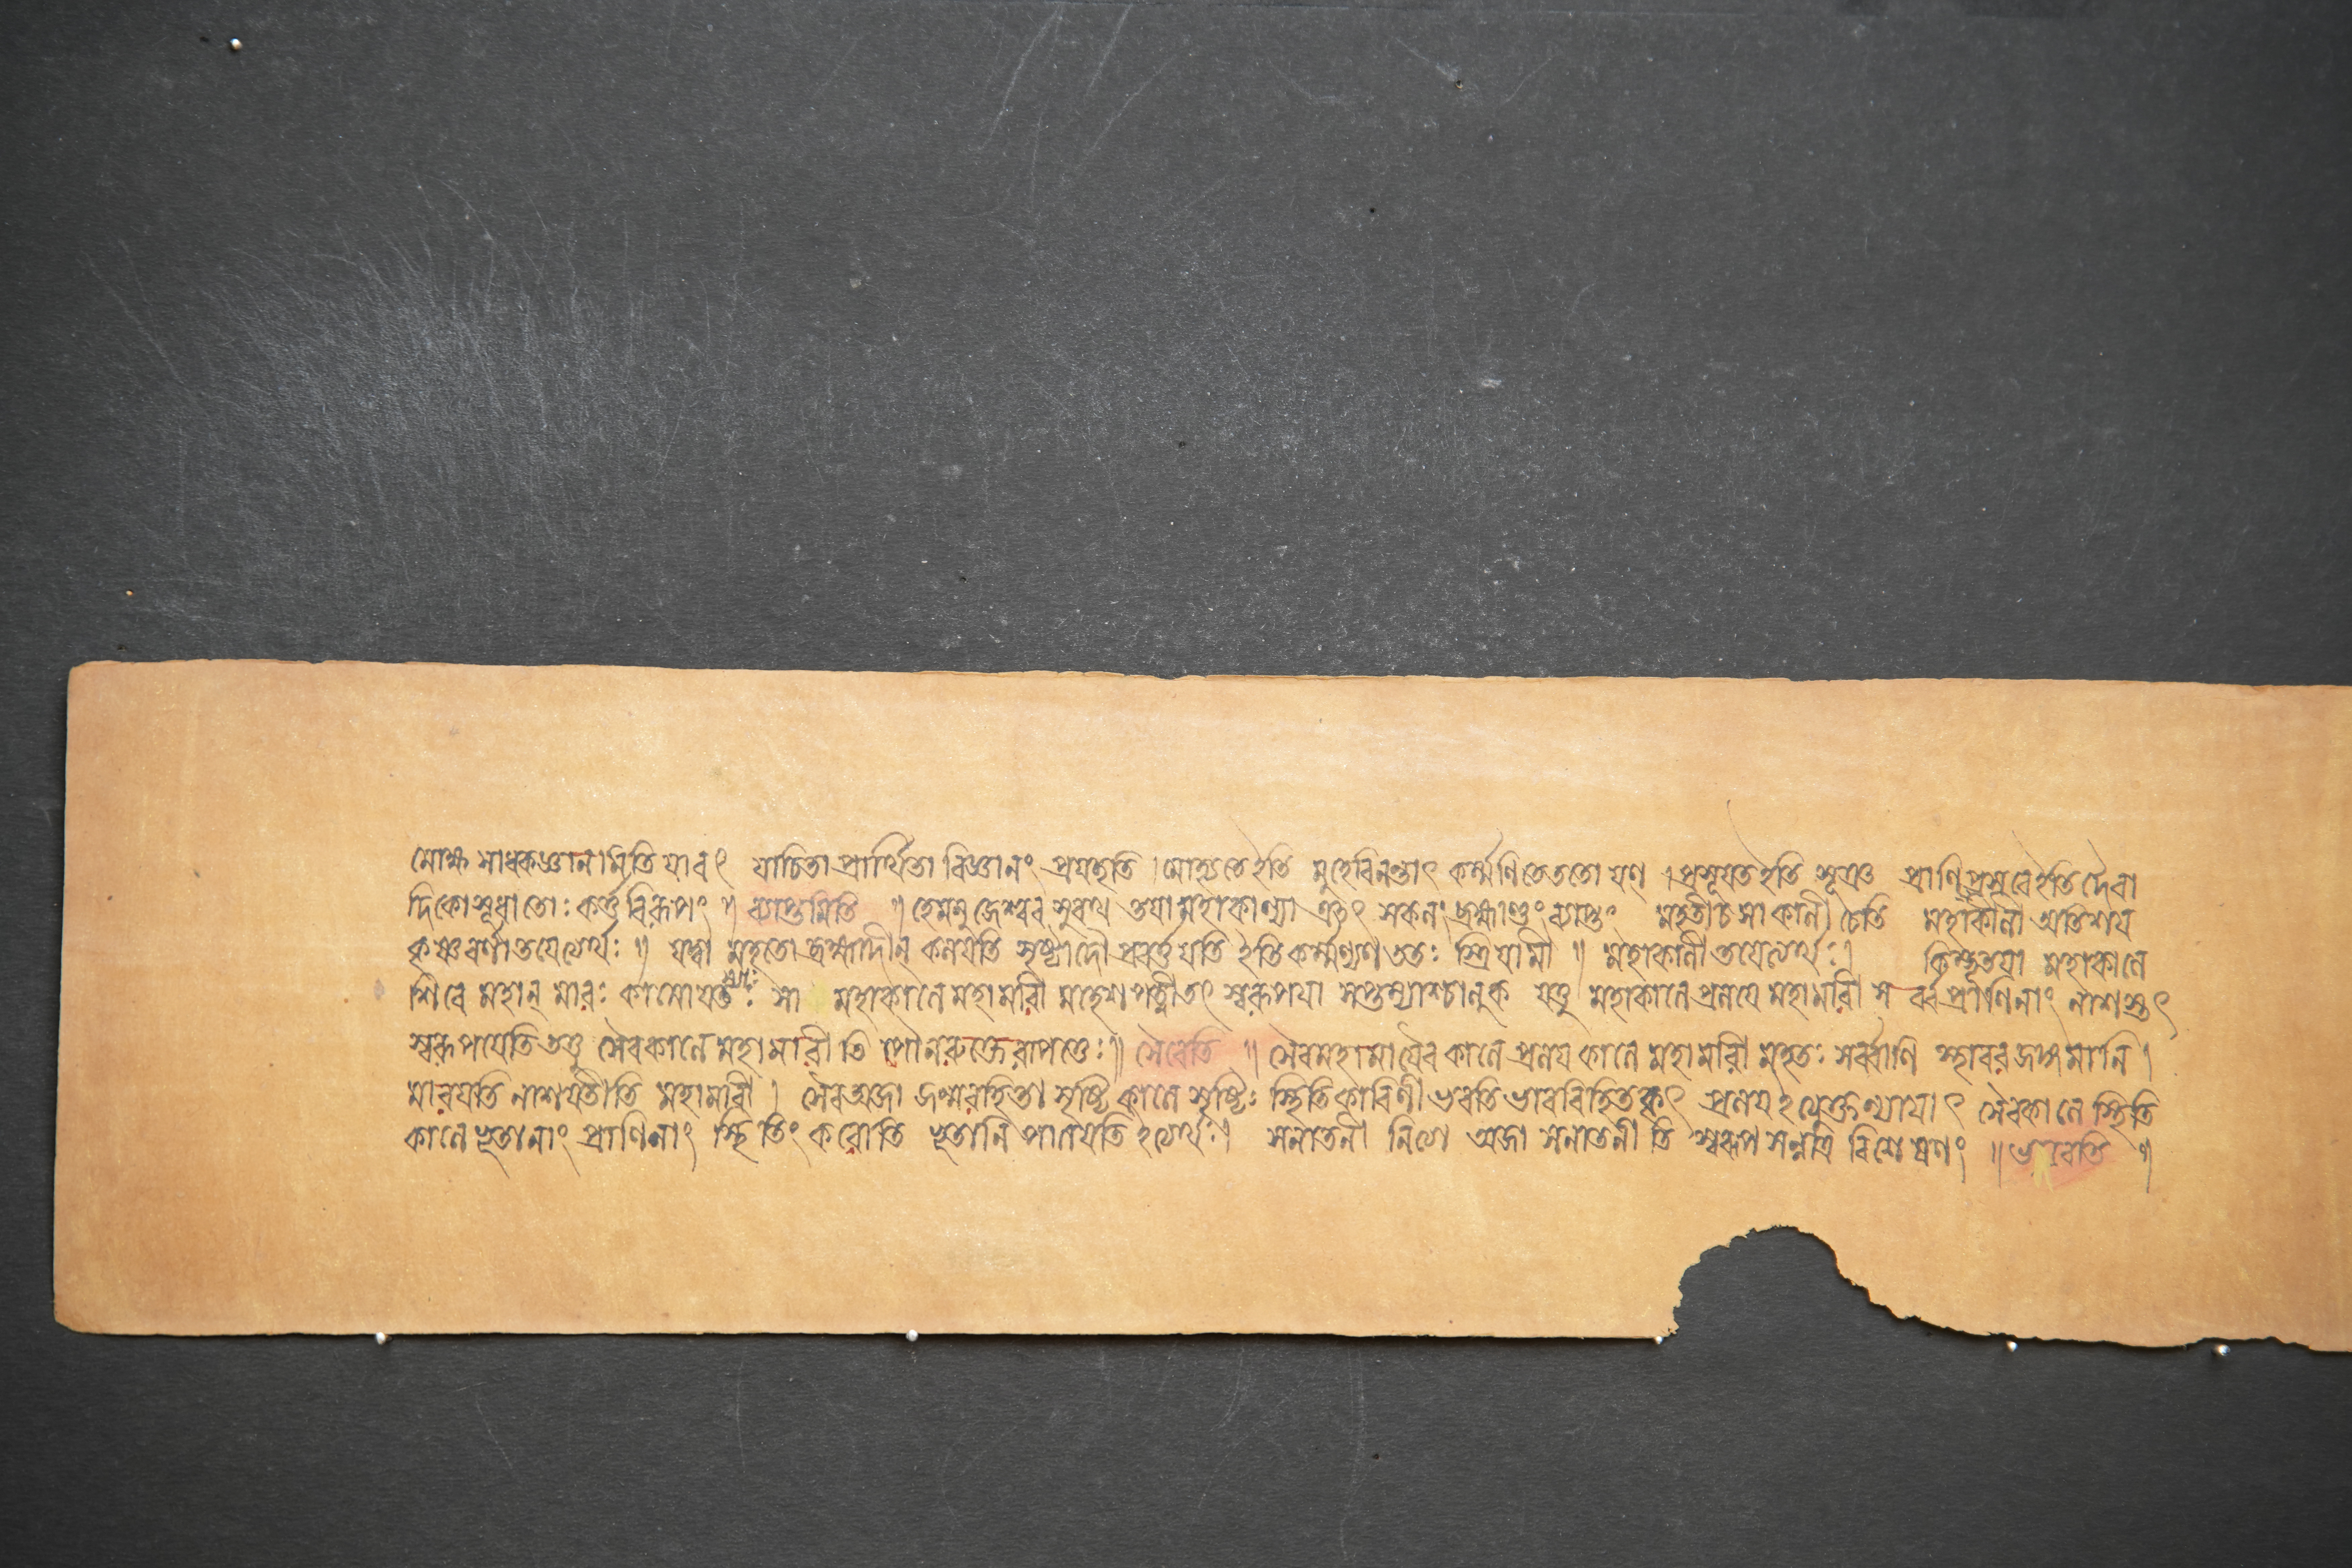 মোক্ষ সাধকজ্ঞানমিতি যাবৎ যাচিতা প্রার্থিতা বিজ্ঞানং প্রযচ্ছতি । মোহ্যতে ইতি মুহেৰিনন্তাৎ কর্ম্মণিতে ততো যণ । প্রসূযত ইতি সূঞ প্রাণিপ্রসবে ইতি দৈবা
দিকো সূধাতোঃ কর্ত্তৃৰিৰূপং ॥ ব্যাপ্তমিতি ॥ হে মনুজেশ্বৰ সুৰথ তযা মহাকাল্যা এতৎ সকলং ব্রহ্মাণ্ডং ব্যাপ্তং মহতী চ সা কালী চেতি মহাকালী অতিশয
কৃষ্ণবর্ণা তযেত্যর্থঃ ॥ যদ্বা মহতো ব্রহ্মাদীন্ কলযতি সৃষ্ট্যাদৌ প্রবর্ত্তযতি ইতি কর্ম্মণ্যণ ততঃ স্ত্রিযামী ॥ মহাকালী তযেত্যর্থঃ । কিম্ভূতযা মহাকালে
শিবে মহান্ মাৰঃ কামো যস্যাঃ সা মহাকালে মহামাৰী মহেশপত্নী তৎ স্বৰূপযা সপ্তম্যাশ্চালুক যত্তু মহাকালে প্রলযে মহামাৰী সর্ব্বপ্রাণিনাং নাশস্তৎ
স্বৰূপযেতি তত্তু সৈব কালে মহামাৰীতি পৌনৰুক্তেৰাপত্তেঃ ॥ সৈবেতি ॥ সৈব মহামাযৈব কালে প্রলয কালে মহামাৰী মহতঃ সর্ব্বাণি স্থাবৰ জঙ্গমানি ।
মাৰযতি নাশযতীতি মহামাৰী । সৈব অজা জন্মৰহিতা সৃষ্টি কালে সৃষ্টিঃ স্থিতিকাৰিণী ভবতি ভাববিহিতকৃৎ প্রলয ইত্যুক্তন্যাযাৎ সৈব কালে স্থিতি
কালে ভূতানাং প্রাণিনাং স্থিতিং কৰোতি ভূতানি পালযতি ইত্যর্থঃ । সনাতনী নিত্যে অজা সনাতনীতি স্বৰূপ সন্নত্রি বিশেষণং ॥ ভবেতি ॥